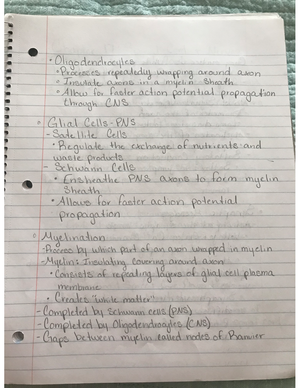 • Oligodendrocytes
• Processes repeatedly wrapping around axon
• Insulate axons in a myelin sheath
• Allow for faster action potential propagation
through CNS
◦ Glial Cells - PNS
- Satellite Cells
• Regulate the exchange of nutrients and
waste products
- Schwann Cells
• Ensheathe PNS axons to form myelin
sheath
• Allows for faster action potential
propagation
◦ Myelination
- Process by which part of an axon wrapped in myelin
- Myelin: Insulating covering around axon
• Consists of repeating layers of glial cell plasma
membrane
• Creates "white matter"
- Completed by Schwann cells (PNS)
- Completed by Oligodendrocytes (CNS)
- Gaps between myelin called nodes of Ranvier